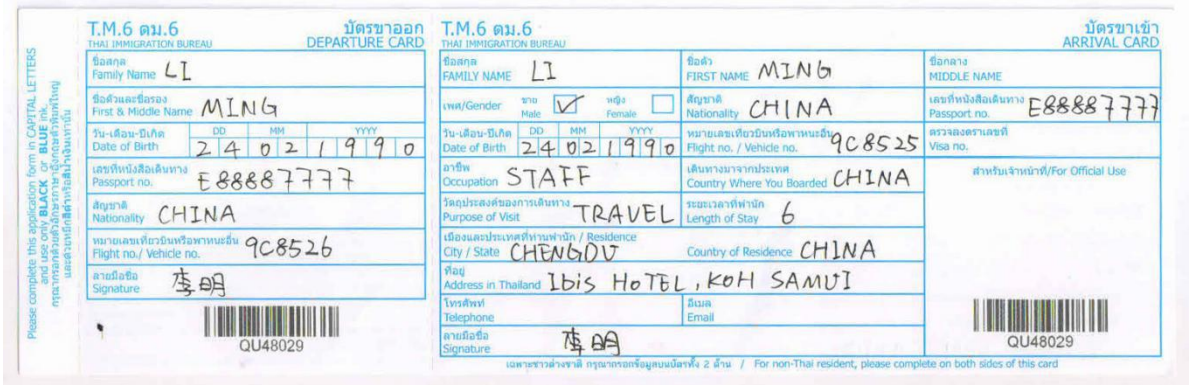 Please complete this application form in CAPITAL LETTERS
and use only BLACK or BLUE ink.
กรุณากรอกด้วยตัวอักษรภาษาอังกฤษตัวพิมพ์ใหญ่
และด้วยหมึกสีดำหรือสีน้ำเงินเท่านั้น
T.M.6 ตม.6 บัตรขาออก
THAI IMMIGRATION BUREAU DEPARTURE CARD
ชื่อสกุล
Family Name LI
ชื่อตัวและชื่อรอง
First & Middle Name MING
วัน-เดือน-ปีเกิด DD MM YYYY
Date of Birth 24 02 1990
เลขที่หนังสือเดินทาง
Passport no. E88887777
สัญชาติ
Nationality CHINA
หมายเลขเที่ยวบินหรือพาหนะอื่น
Flight no./ Vehicle no. 9C8526
ลายมือชื่อ
Signature 李明
QU48029
T.M.6 ตม.6 บัตรขาเข้า
THAI IMMIGRATION BUREAU ARRIVAL CARD
ชื่อสกุล
FAMILY NAME LI
ชื่อตัว
FIRST NAME MING
ชื่อกลาง
MIDDLE NAME
เพศ/Gender ชาย Male หญิง Female
สัญชาติ
Nationality CHINA
เลขที่หนังสือเดินทาง
Passport no. E88887777
วัน-เดือน-ปีเกิด DD MM YYYY
Date of Birth 24 02 1990
หมายเลขเที่ยวบินหรือพาหนะอื่น
Flight no. / Vehicle no. 9C8525
ตรวจลงตราเลขที่
Visa no.
อาชีพ
Occupation STAFF
เดินทางมาจากประเทศ
Country Where You Boarded CHINA
สำหรับเจ้าหน้าที่/For Official Use
วัตถุประสงค์ของการเดินทาง
Purpose of Visit TRAVEL
ระยะเวลาที่พำนัก
Length of Stay 6
เมืองและประเทศที่ท่านพำนัก / Residence
City / State CHENGDU Country of Residence CHINA
ที่อยู่
Address in Thailand Ibis HoTEL, KOH SAMUI
โทรศัพท์
Telephone
อีเมล
Email
ลายมือชื่อ
Signature 李明
QU48029
เฉพาะชาวต่างชาติ กรุณากรอกข้อมูลบนบัตรทั้ง 2 ด้าน / For non-Thai resident, please complete on both sides of this card